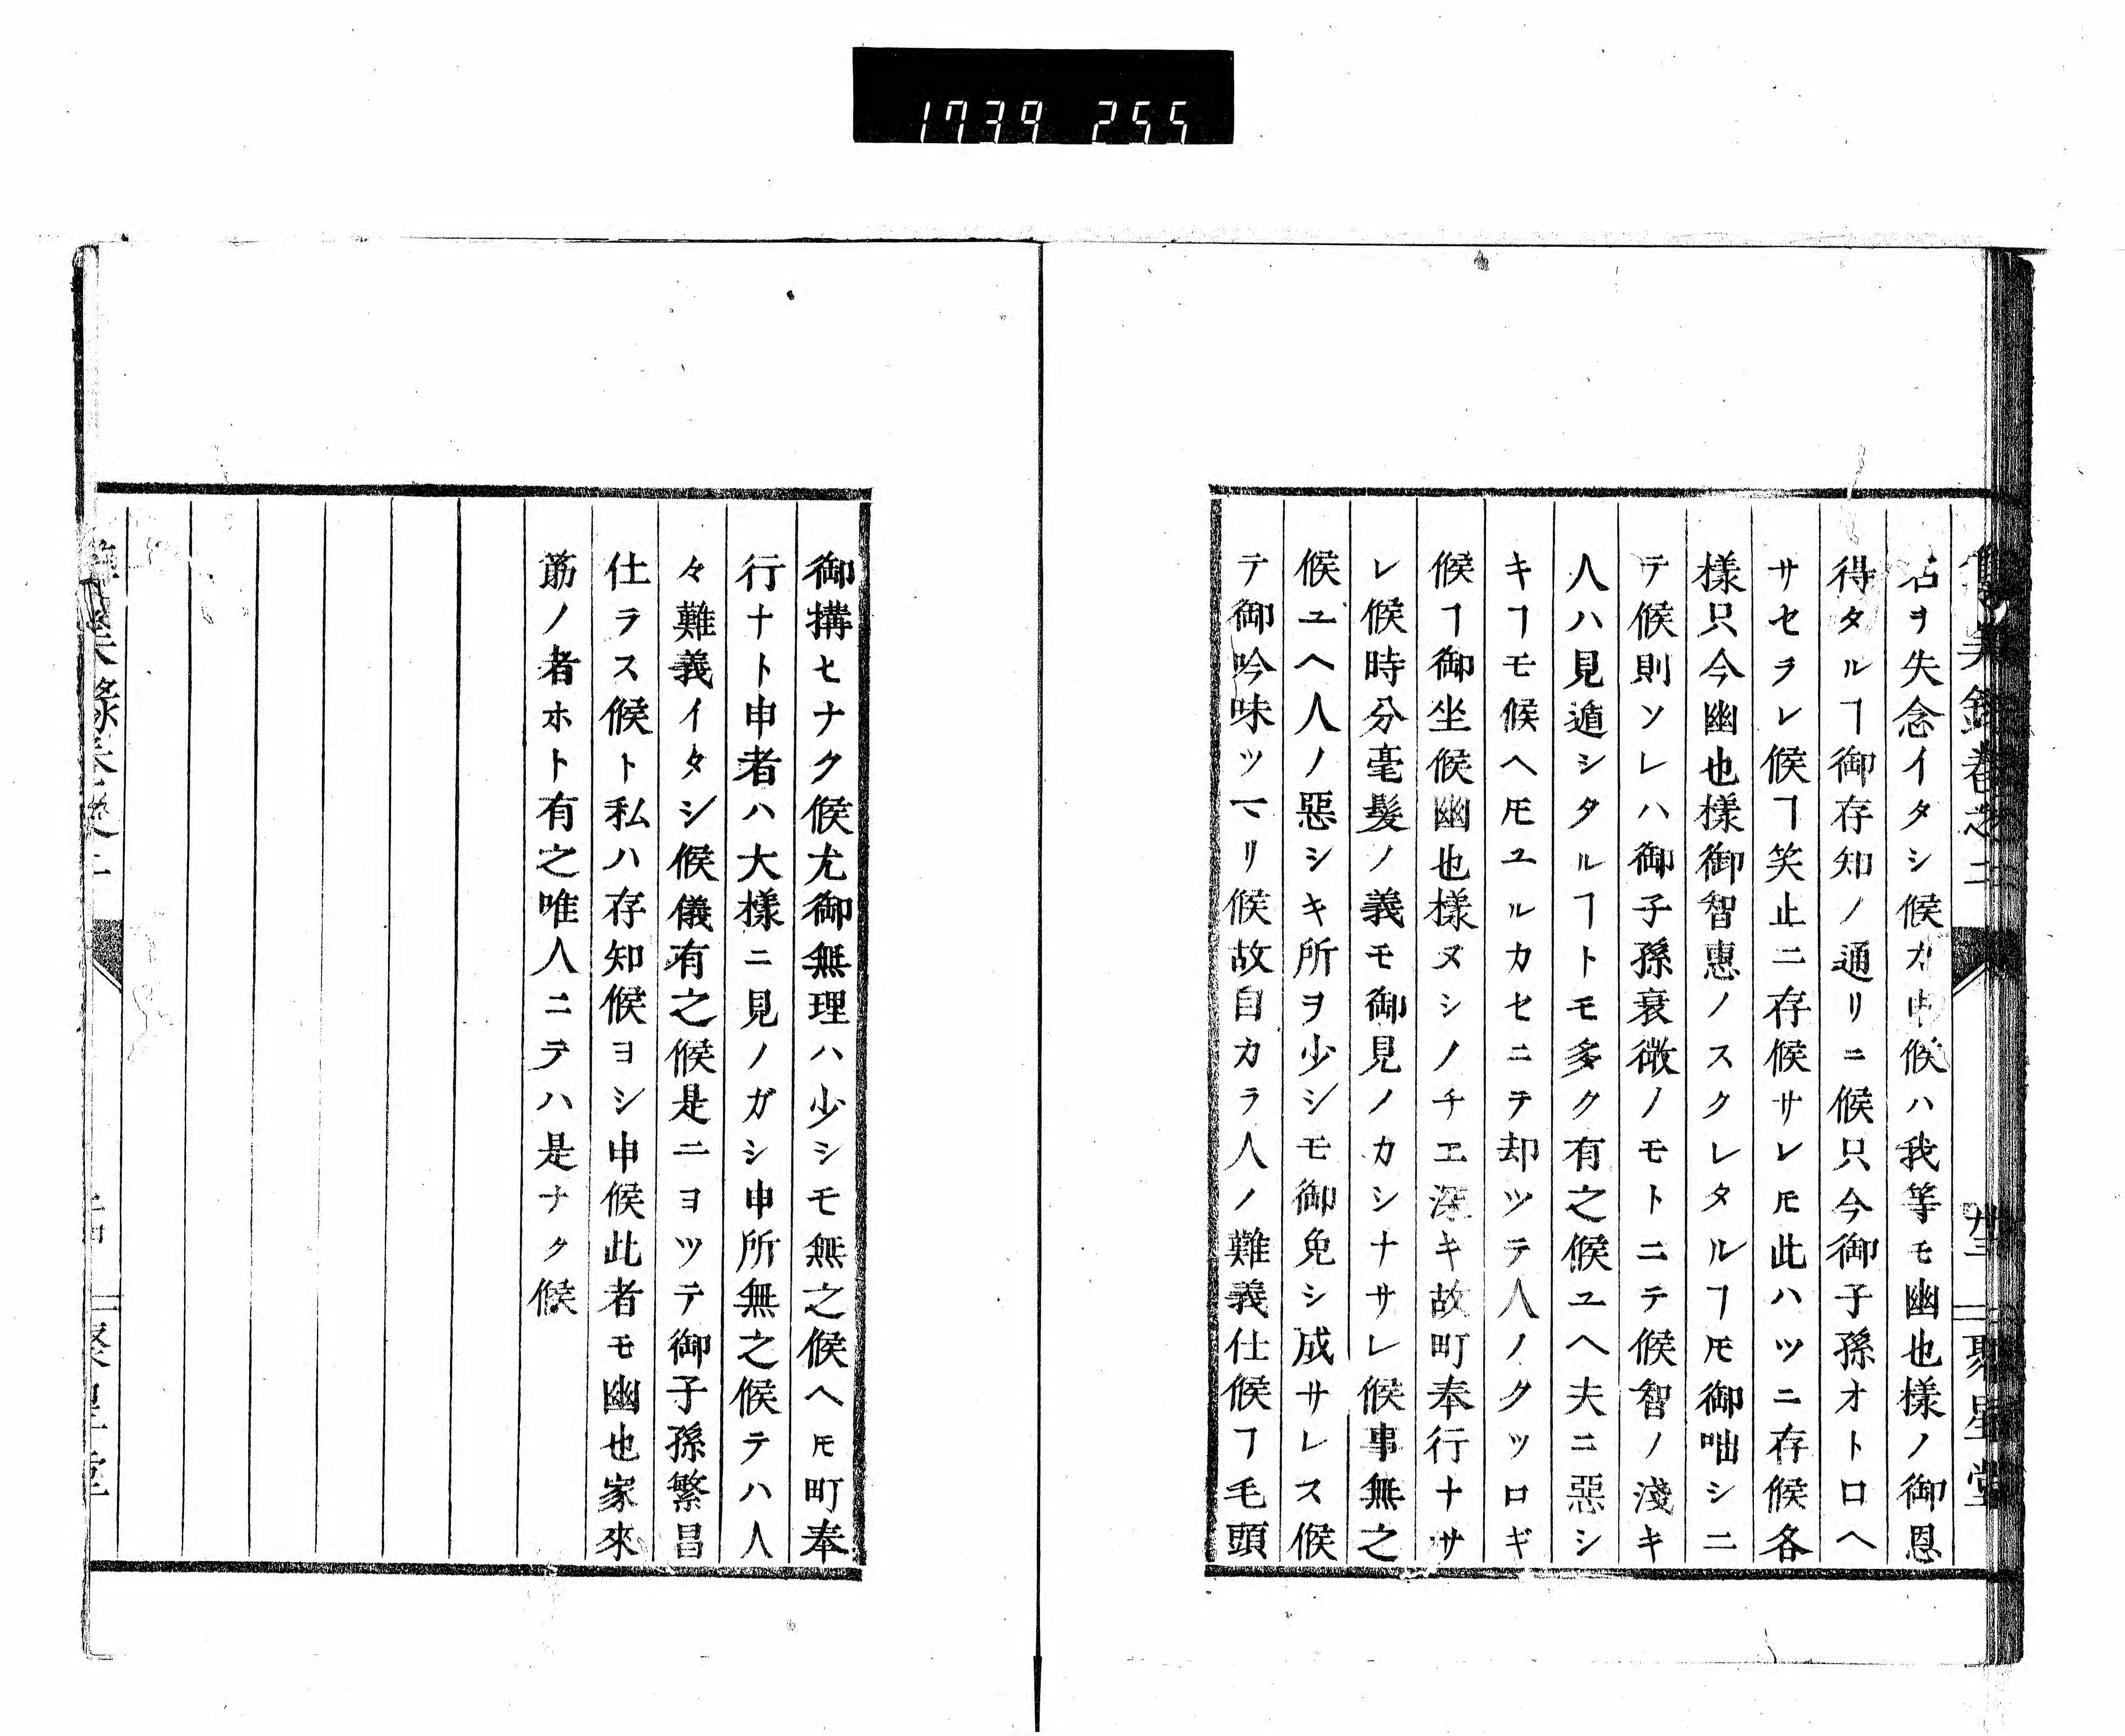 1739 255
名ヲ失念イタシ候カ申候ハ我等モ幽也樣ノ御恩
得タルヿ御存知ノ通リニ候只今御子孫オトロヘ
サセヲレ候ヿ笑止ニ存候サレ𪜈此ハツニ存候各
樣只今幽也樣御智惠ノスクレタルヿ𪜈御咄シニ
テ候則ソレハ御子孫衰微ノモトニテ候智ノ淺キ
人ハ見遁シタルヿトモ多ク有之候ユヘ夫ニ惡シ
キヿモ候ヘ𪜈ユルカセニテ却ツテ人ノクツロギ
候ヿ御坐候幽也樣ヌシノチヱ深キ故町奉行ナサ
レ候時分毫髮ノ義モ御見ノカシナサレ候事無之
候ユヘ人ノ惡シキ所ヲ少シモ御免シ成サレス候
テ御吟味ツマリ候故自カラ人ノ難義仕候ヿ毛頭
御搆ヒナク候尤御無理ハ少シモ無之候ヘ𪜈町奉
行ナト申者ハ大樣ニ見ノガシ申所無之候テハ人
々難義イタシ候儀有之候是ニヨツテ御子孫繁昌
仕ラス候ト私ハ存知候ヨシ申候此者モ幽也家來
筋ノ者ホト有之唯人ニテハ是ナク候
聚星堂